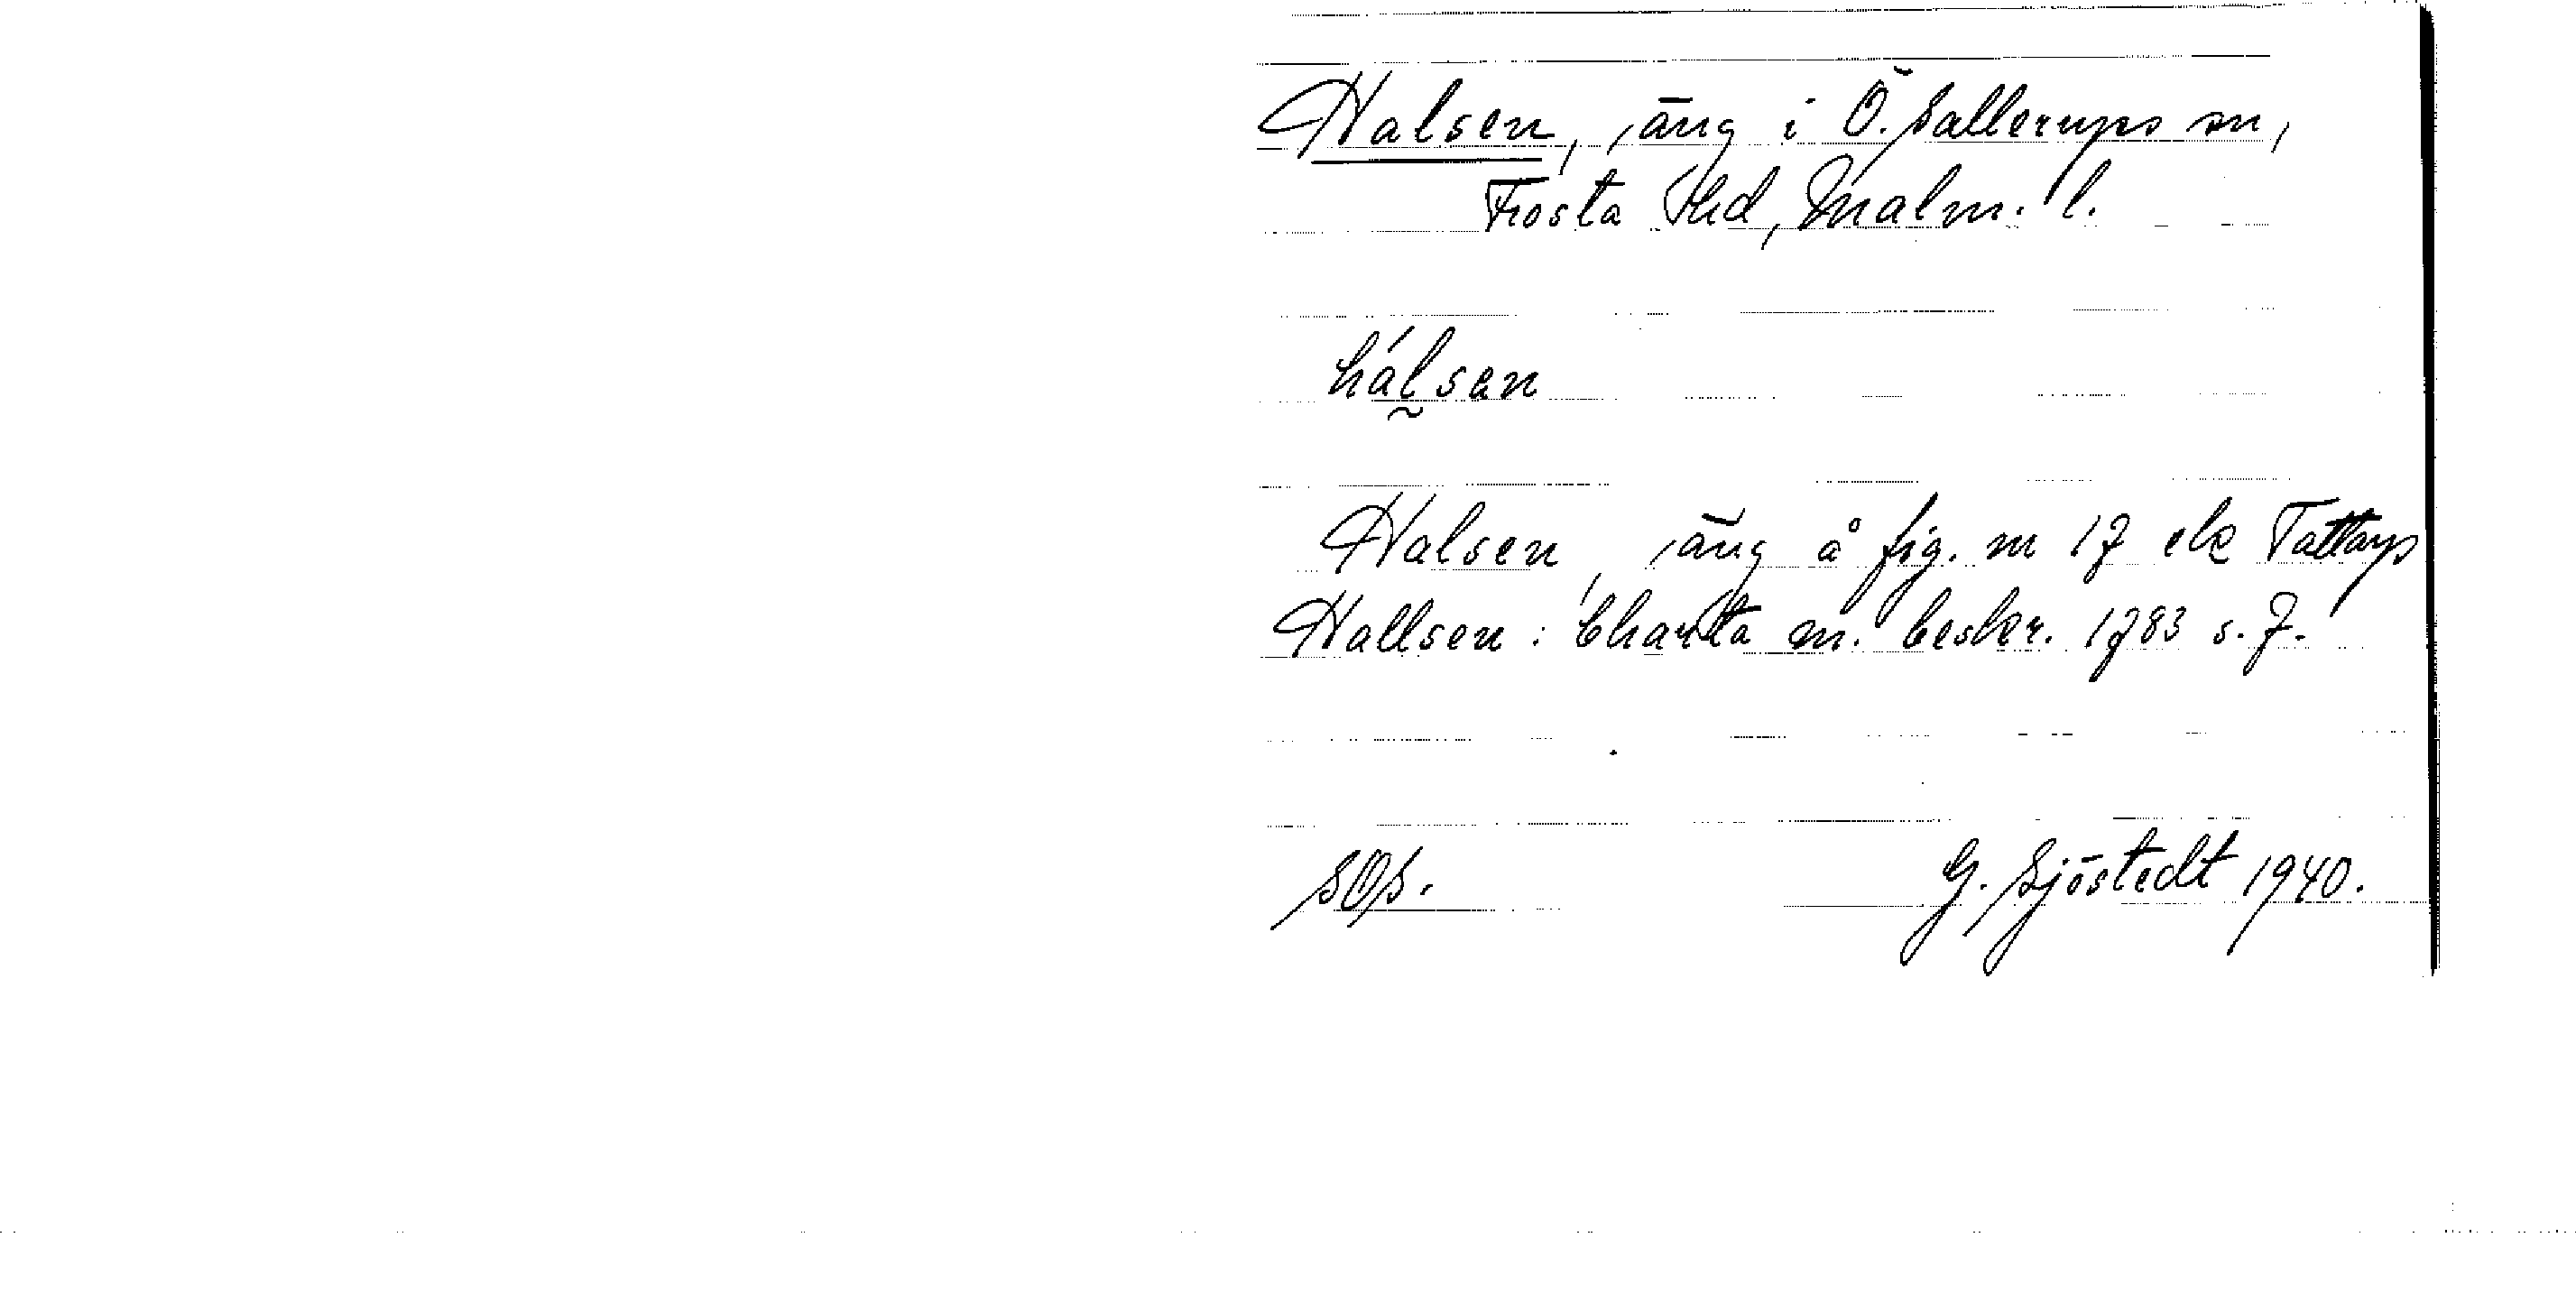 Halsen, äng i Ö. Sallerups sn,
Frosta Hd, Malm. l.
hálsen
Halsen, äng å fig. nr 17 Tattarp
Hallsen: Charta m. beskr. 1783 s. 7.
SOS. G. Sjöstedt 1940.